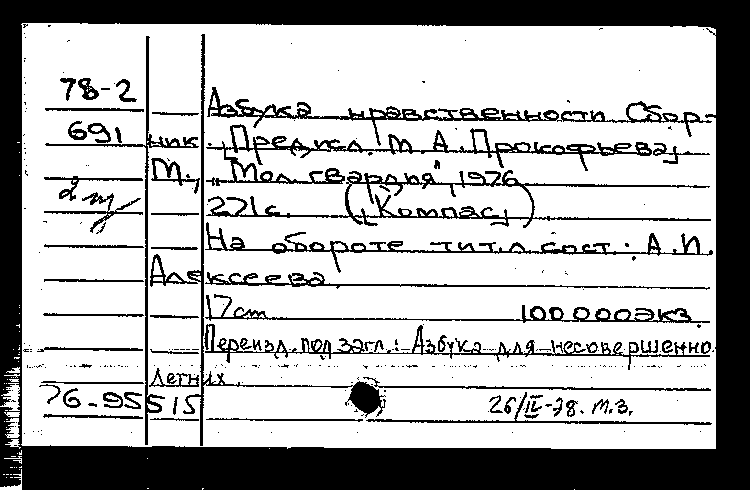 78-2
Азбука нравственности Сбор-
691 ник. „Предисл. М. А. Прокофьева„
М., „Мол. гвардия", 1976
2 271 с. („Компас„)
На обороте тит. л. сост.: А.И.
Алексеева
17 cm 100 000 экз.
Переизд. под загл.: Азбука для несовершенно
летних.
76-95515 26/IV-78. М.З.